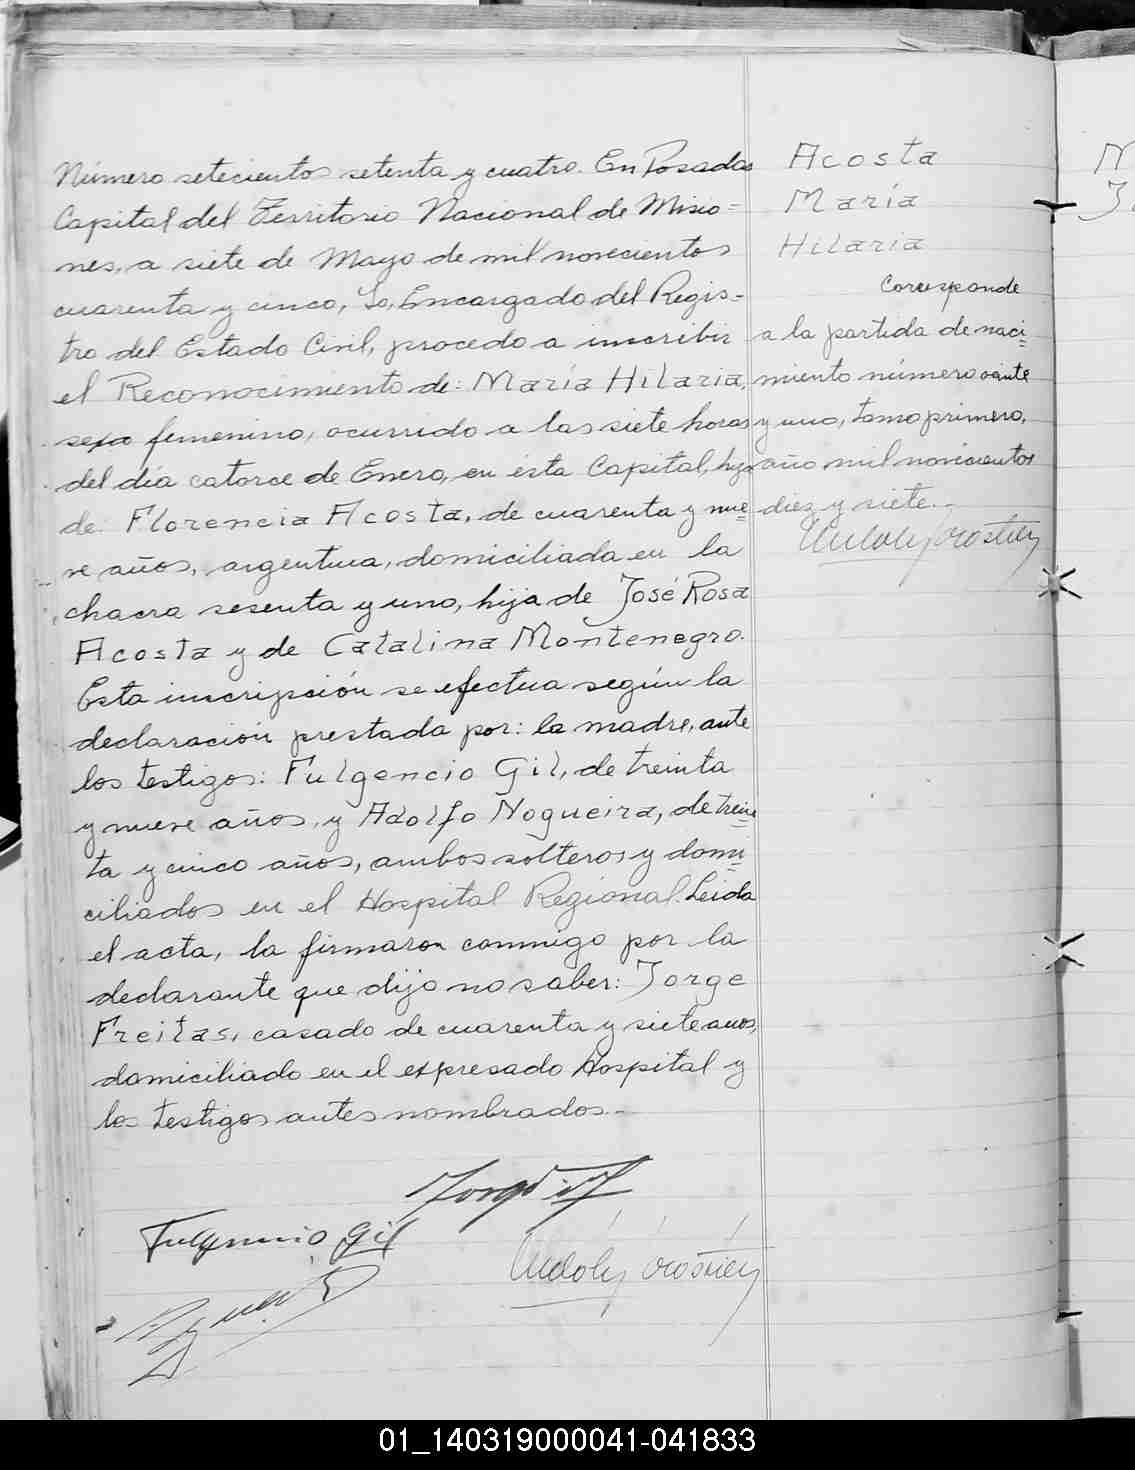 Número setecientos setenta y cuatro. En Posadas
Capital del Territorio Nacional de Misio=
nes, a siete de Mayo de mil novecientos
cuarenta y cinco, Yo, Encargado del Regis=
tro del Estado Civil, procedo a inscribir
el Reconocimiento de: María Hilaria,
sexo femenino, ocurrido a las siete horas
del día catorce de Enero, en ésta Capital, hija
de: Florencia Acosta, de cuarenta y nue=
ve años, argentina, domiciliada en la
chacra sesenta y uno, hija de José Rosa
Acosta y de Catalina Montenegro.
Esta inscripción se efectua según la
declaración prestada por: la madre, ante
los testigos: Fulgencio Gil, de treinta
y nueve años, y Adolfo Nogueira, de trein=
ta y cinco años, ambos solteros y domi=
ciliados en el Hospital Regional. Leida
el acta, la firmaron conmigo por la
declarante que dijo no saber: Jorge
Freitas, casado de cuarenta y siete años,
domiciliado en el expresado Hospital y
los testigos antes nombrados.-
Fulgencio Gil
Acosta
María
Hilaria
Corresponde
a la partida de naci=
miento número veinte
y uno, tomo primero,
año mil novecientos
diez y siete.-
N
J
01_140319000041-041833